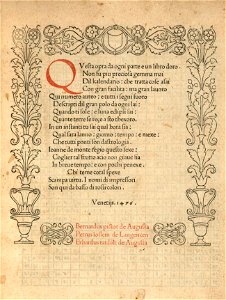 Questa opra da ogni parte e un libro doro.
Non fu piu preciosa gemma mai
Dil kalendario: che tratta cose asai
Con gran facilita: ma gran lauoro
Qui numero aureo: e tutti i segni fuoro
Descripti dil gran polo da ogni lai:
Quando il sole: e luna eclipsi fai:
Quante terre se rece a sto thesoro.
In un instanti tu sai qual hora sia:
Qual sara lanno: giorno: tempo: e mexe:
Che tutti ponti son dastrologia.
Ioanne de monte regio questo fexe:
Coglier tal frutto acio non graue sia
In breue tempo: e con pochi penexe.
Chi teme cotal spexe
Scampa uirtu. I nomi di impressori
Son qui da basso di rossi colori.
Venetijs. 1476.
Bernardus pictor de Augusta
Petrus loslein de Langencen
Erhardus ratdolt de Augusta